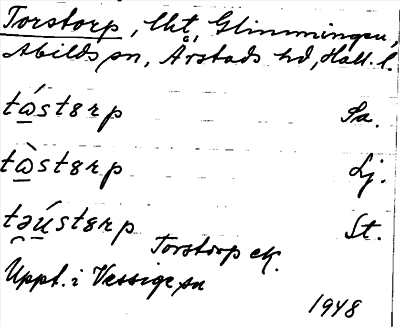 Torstorp, lht, Glimmingen,
Abilds sn, Årstads hd, Hall. l.
tá̱stɛrp Sa.
tà̱stɛrp Lj.
təú̱stɛrp St.
Torstorp ek.
Uppt. i Vessige sn
1948